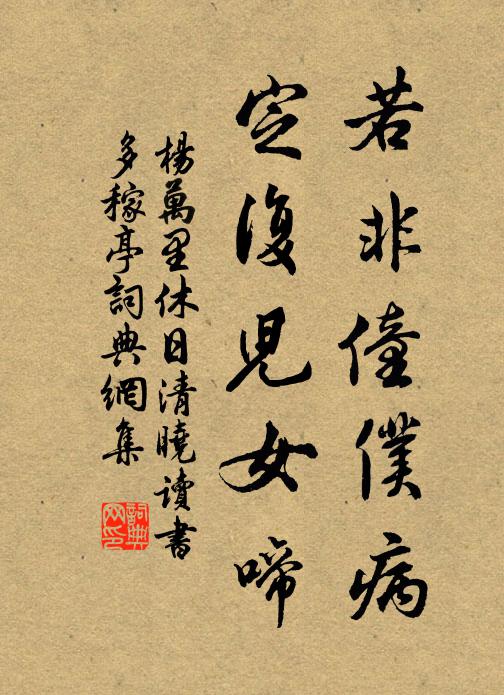 若非僮僕病
定復兒女啼
楊萬里休日清曉讀書
多稼亭詞典網集
詞典
网印